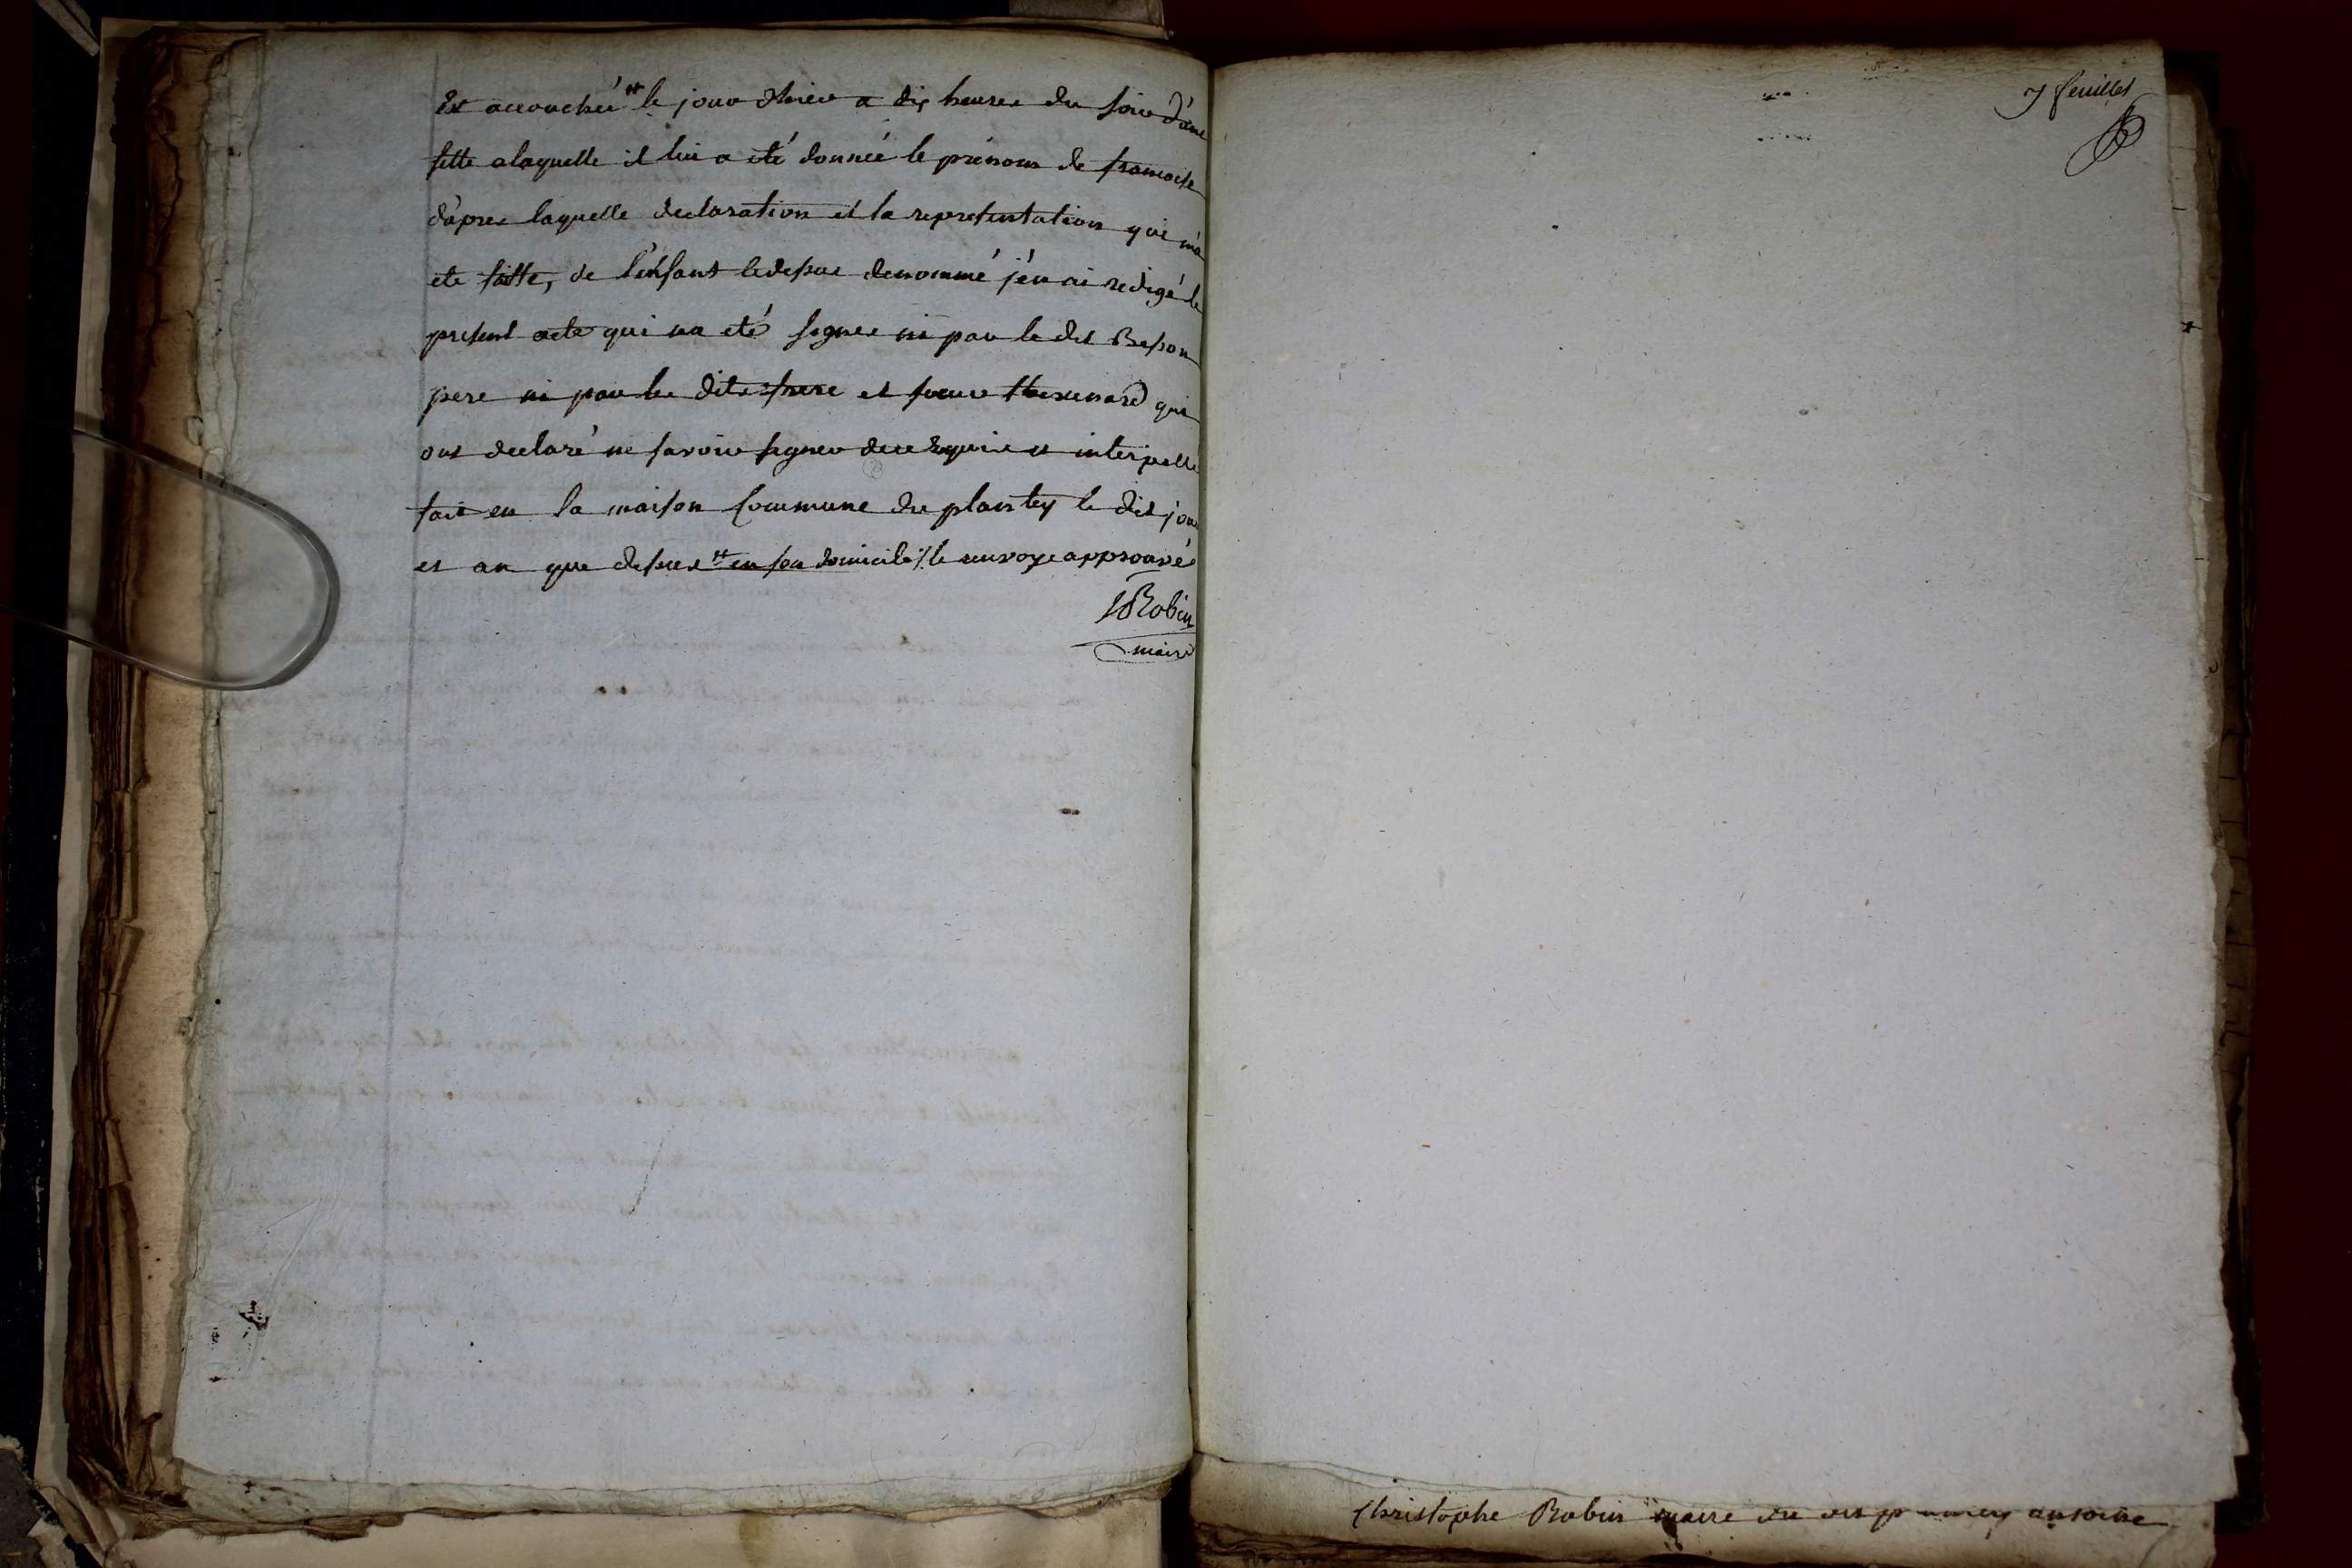 Est accouchée # le jour d'hiere a dix heures du soir d'une
fille a laquelle il lui a été donnée le prénom de francoise
d'apres laquelle declaration et la representation qui m'a
ete faitte, de l'enfant ledessus denommé j'en ai redigé le
present acte qui na eté signer ni par le dit Besson
pere ni par les dits frere et soeur thevenard qui
ont declaré ne savoir signer de ce requis et interpellé
fait en la maison Commune du plantey le dit jour
et an que dessus # en son domicile / le renvoye approuvé
Robin
maire
7 feuillet
Christophe Robin maire du antoine